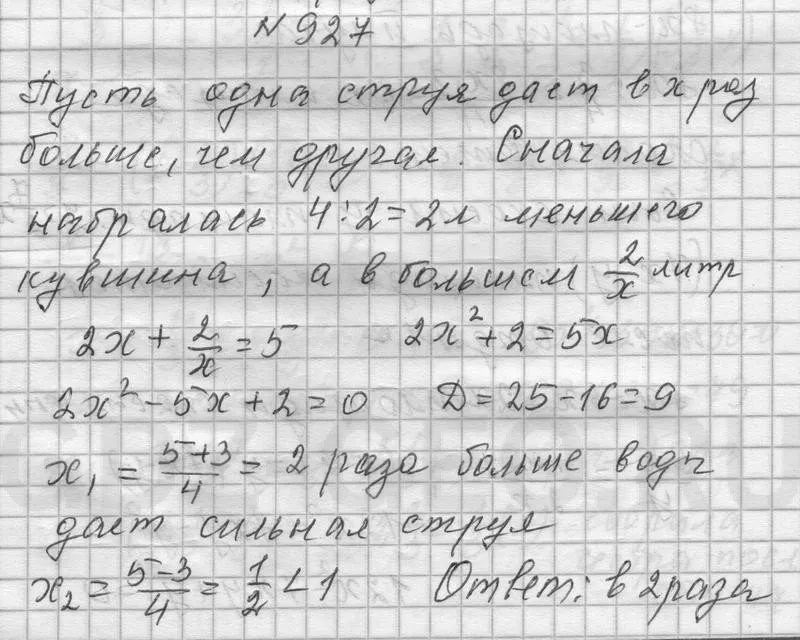 N 927
Пусть одна струя дает в x раз
больше, чем другая. Сначала
набралась 4:2=2л меньшего
кувшина, а в большем 2/x литр
2x + 2/x = 5 2x² + 2 = 5x
2x² - 5x + 2 = 0 D = 25 - 16 = 9
x₁ = (5+3)/4 = 2 раза больше воды
дает сильная струя
x₂ = (5-3)/4 = 1/2 < 1 Ответ: в 2 раза